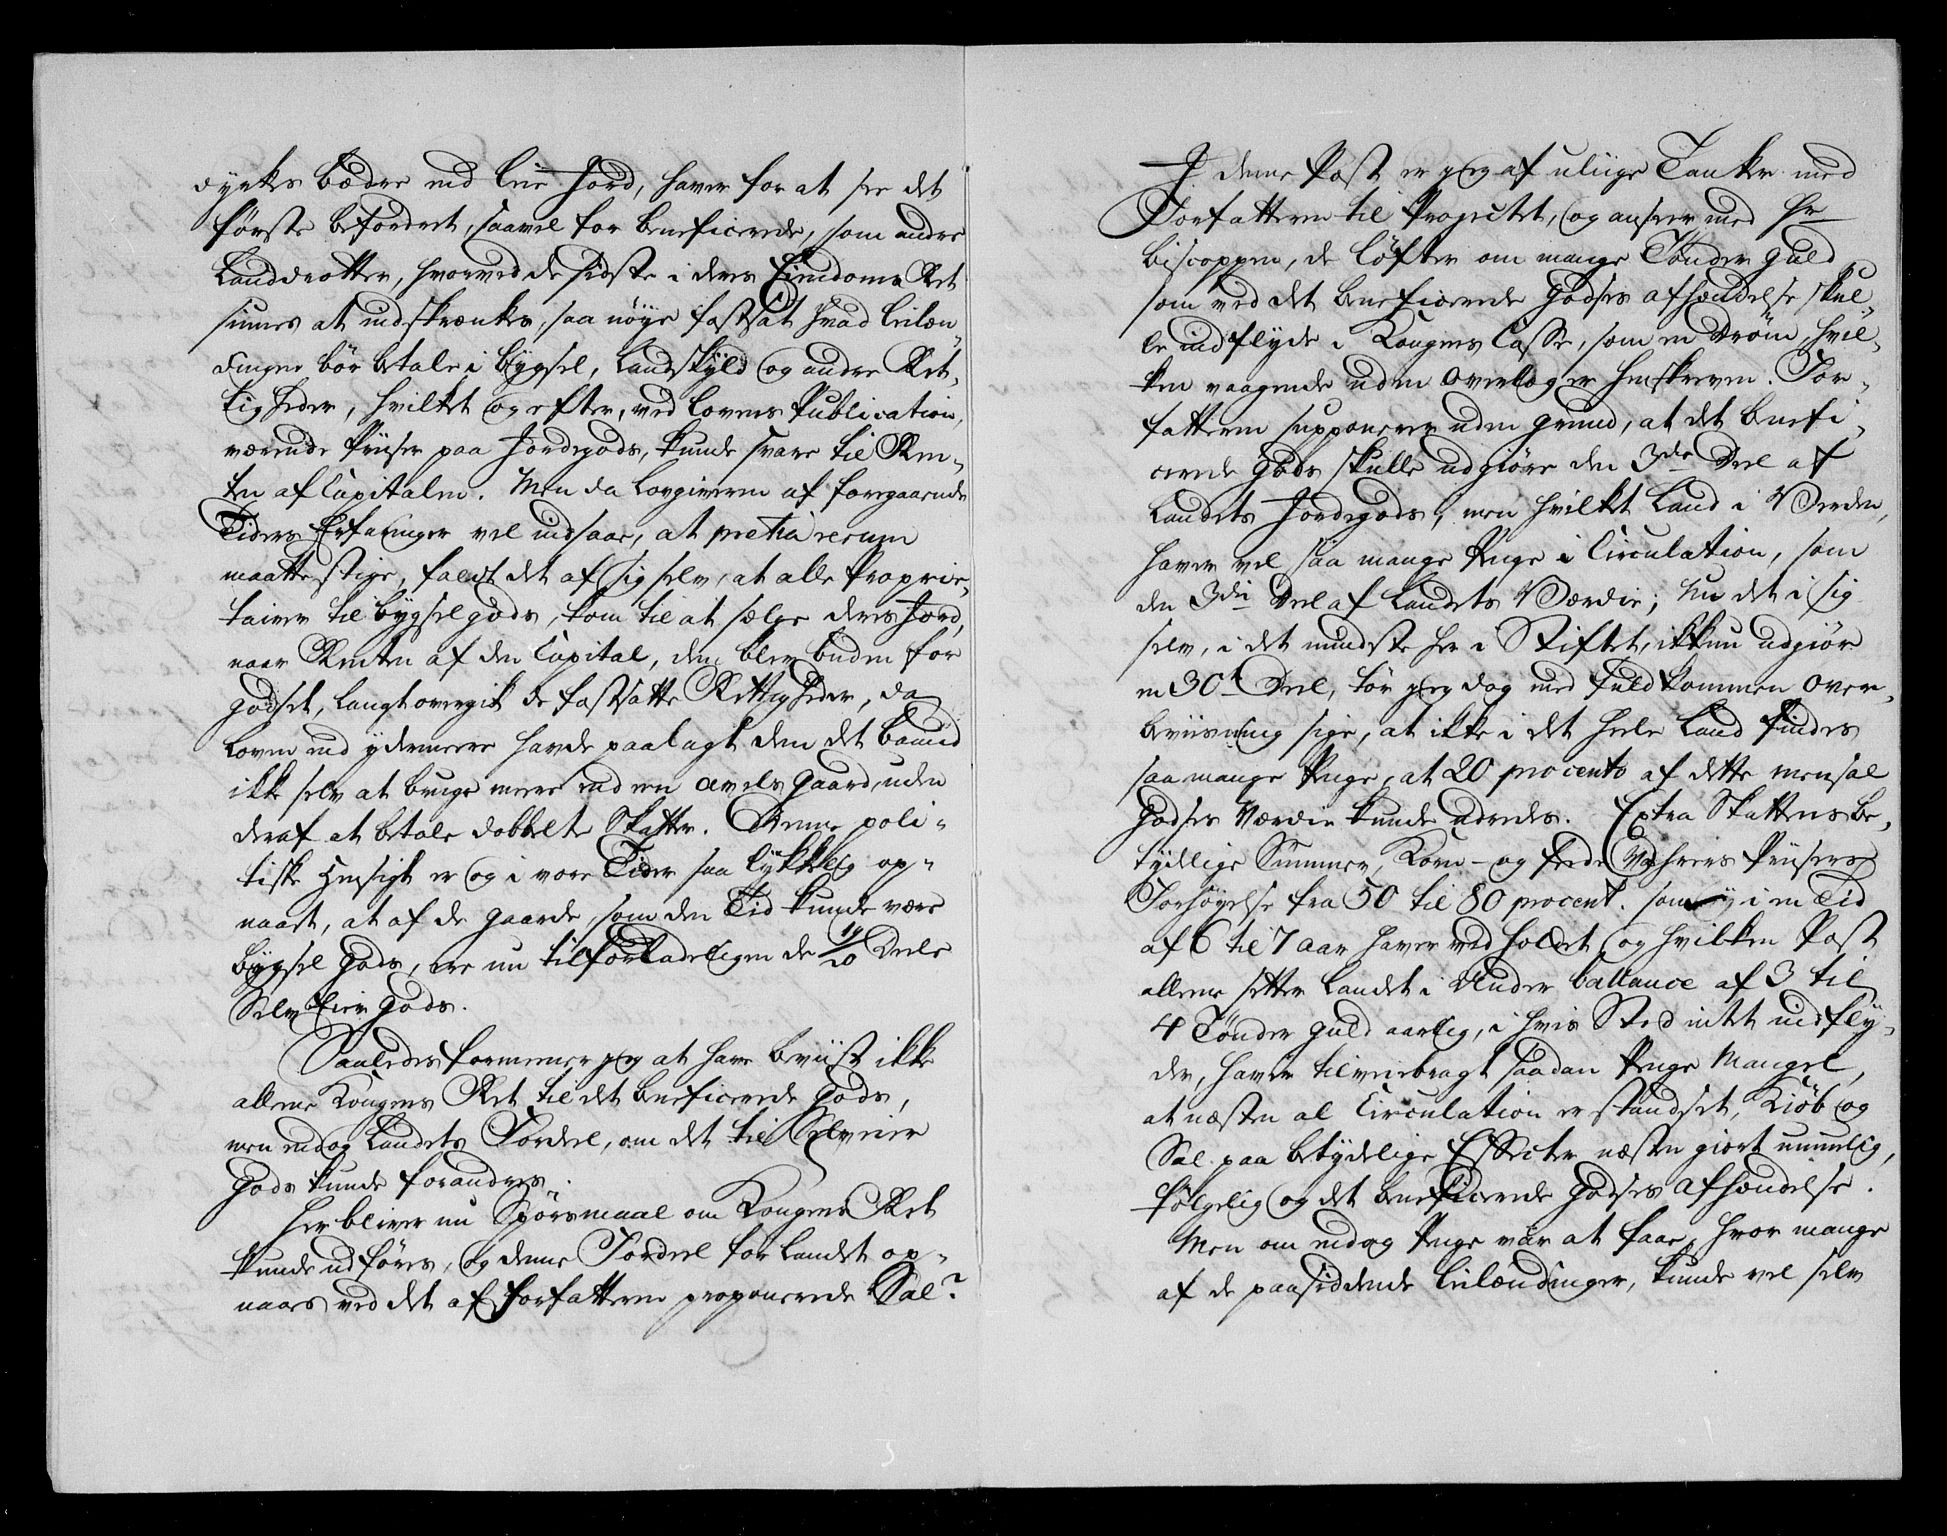 dyrkes bædre end leie Jord, haver for at see det
første befordret, saavel for beneficerede, som andre
Landdrotter, hvorved de sidste i deres Eiendoms Ret
siunes at indskrænkes, saa nöye fastsat hvad Leilæn„
dingene bör betale i bÿgsel, Landskÿld og andre Ret„
tigheder, hvilket og efter, ved lovens Publication,
værende Priiser paa Jordegods, kunde svare til Ren„
ten af Capitalen. Men da Lovgiveren af foregaaende
Tiders Erfaringer vel indsaae, at pretia rerum
maatte stige, faldt det af sig selv, at alle Proprie„
tairer til bÿgselgods, kom til at sælge deres Jord,
naar Renten af den Capital, den blev buden for
godset, langt overgik de fastsatte Rettigheder, da
Loven end ydermeere havde paalagt dem det baand
ikke selv at bruge meere end een avels gaard, uden
deraf at betale dobbelte Skatter. Denne poli„
tiske Hensigt er og i vore Tider saa lykkelig op„
naaet, at af de gaarde, som den Tid kunde være
bÿgsel gods, ere nu tilforladeligen de 19/20 Deele
Selv Eier gods.
Saaledes formener jeg at have beviist ikke
allene Kongens Ret til det beneficerede gods,
men endog Landets Fordeel, om det til Selveier
gods kunde forandres.
Her bliver nu Spörsmaal om Kongens Ret
kunde udföres, og denne Fordeel for Landet op„
naaes ved det af Forfatteren proponerede Sal?
I denne Post er jeg af uliige Tanker med
Forfatteren til Projectet, og anseer med Hr
Biscoppen, de löfter om mange Tönder guld
som ved det beneficerede godses afhændelse skul„
le indflyde i Kongens Casse, som en dröm, hvil„
ken vaagende uden overlæg er henskreven. For„
fatteren supponerer uden grund, at det benefi„
cerede gods skulle udgiöre den 3die Deel af
Landets Jordegods, men hvilket Land i Verden,
haver vel saa mange Penge i Circulation, som
den 3die Deel af Landets Værdie; Nu det i sig
selv, i det mindste her i Stiftet, ikkun udgiör
en 30te Deel, tör jeg dog med fuldkommen over„
beviisning sige, at ikke i det heele Land findes
saa mange Penge, at 20 procento af dette mensal
godses Værdie kunde udredes. Extra Skattens be„
tydelige Summer, Korn- og fede Vahrers Priisers
Forhöyelse fra 50 til 80 procent. som i en Tid
af 6 til 7 aar haver ved holdet og hvilken Post
allene setter Landet i Under ballance af 3 til
4 Tönder guld aarlig, i hvis Sted intet indfly„
der, haver tilveiebragt saadan Penge Mangel,
at næsten al Circulation er standset, Kiöb og
Sal paa betydelige Effecter næsten giort umuelig,
fölgelig og det beneficerede godses afhændelse.
Men om endog Penge var at faae, hvor mange
af de paasiddende Leilændinger, kunde vel selv